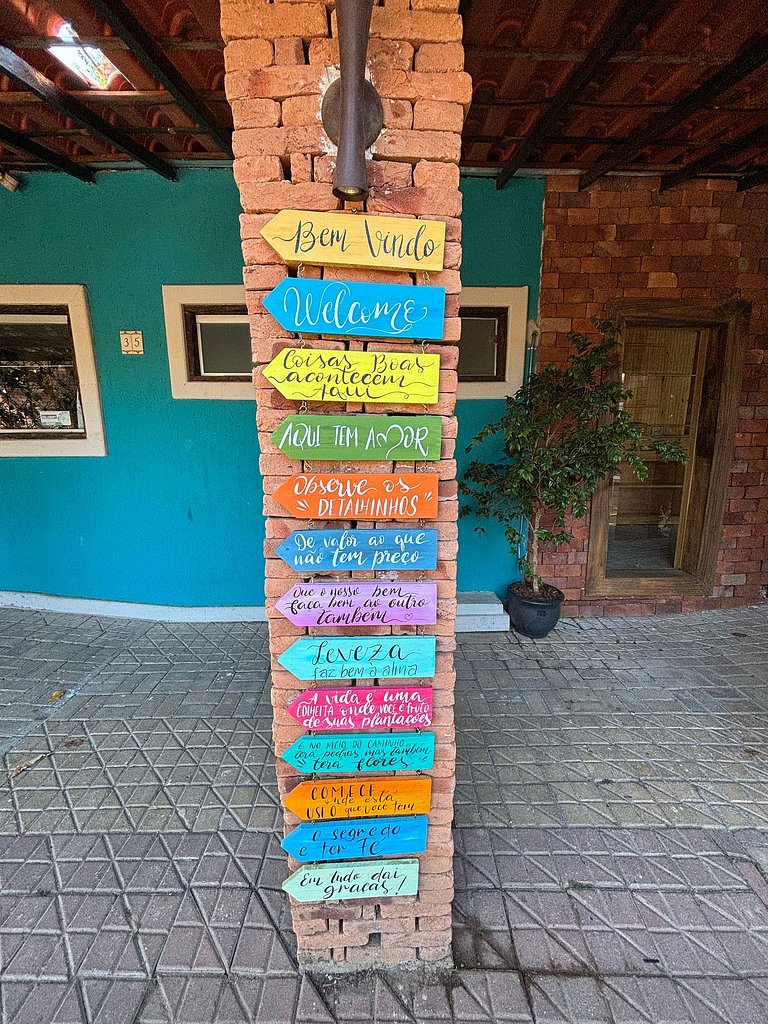 Bem Vindo
Welcome
35
Coisas Boas
acontecem
aqui
AQUI TEM AMOR
Observe os
"DETALHINHOS"
De valor ao que
não tem preço
Que o nosso bem
faça bem ao outro
também
Leveza
faz bem a alma
A vida é uma
COLHEITA onde você é fruto
de suas plantações
E NO MEIO DO CAMINHO
terá pedras, mas também
terá flores
COMECE
onde está
USE O que você tem
O segredo
é ter Fé
Em tudo dai
graças!